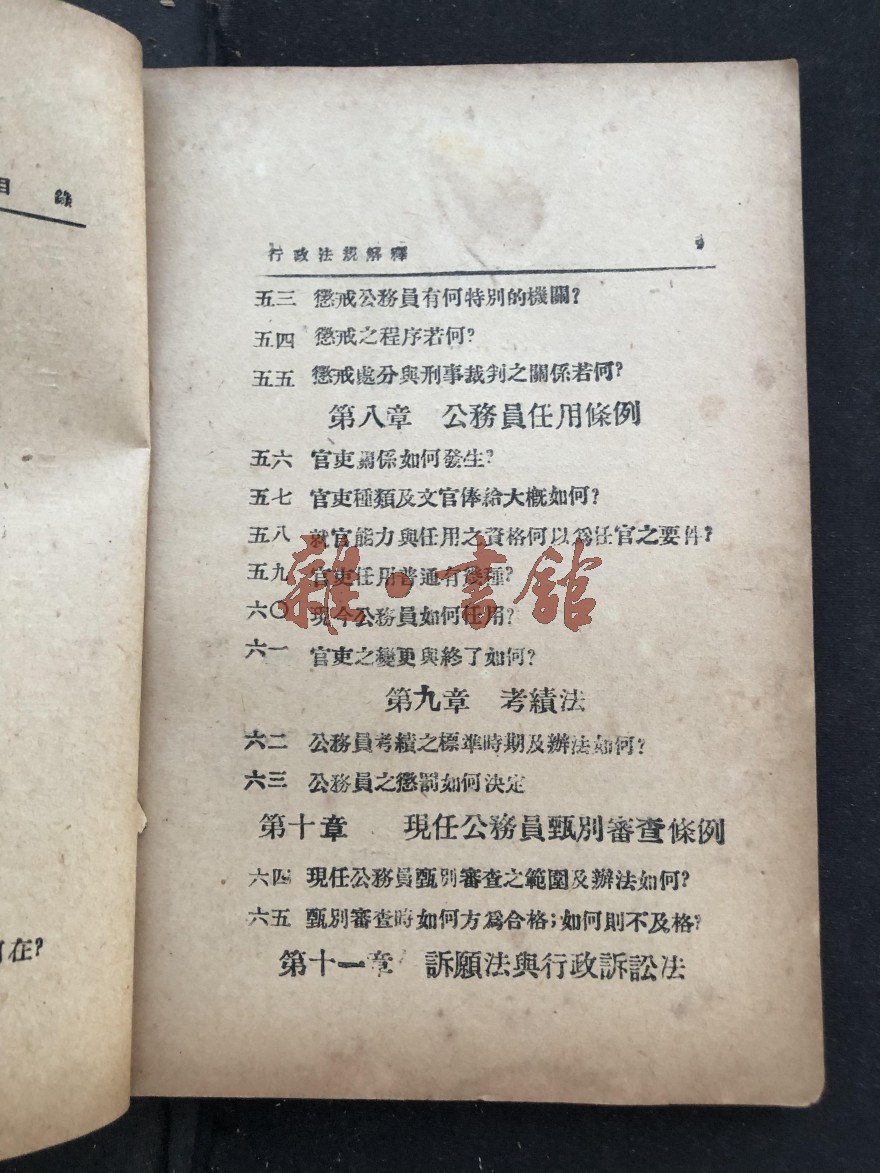 目 錄
可在?
行政法規解釋
五三 懲戒公務員有何特別的機關?
五四 懲戒之程序若何?
五五 懲戒處分與刑事裁判之關係若何?
第八章 公務員任用條例
五六 官吏關係如何發生?
五七 官吏種類及文官俸給大概如何?
五八 就官能力與任用之資格何以爲任官之要件?
五九 官吏任用普通有幾種?
六〇 現今公務員如何任用?
六一 官吏之變更與終了如何?
第九章 考績法
六二 公務員考績之標準時期及辦法如何?
六三 公務員之懲罰如何決定
第十章 現任公務員甄別審查條例
六四 現任公務員甄別審查之範圍及辦法如何?
六五 甄別審查時如何方爲合格;如何則不及格?
第十一章 訴願法與行政訴訟法
雜·書館